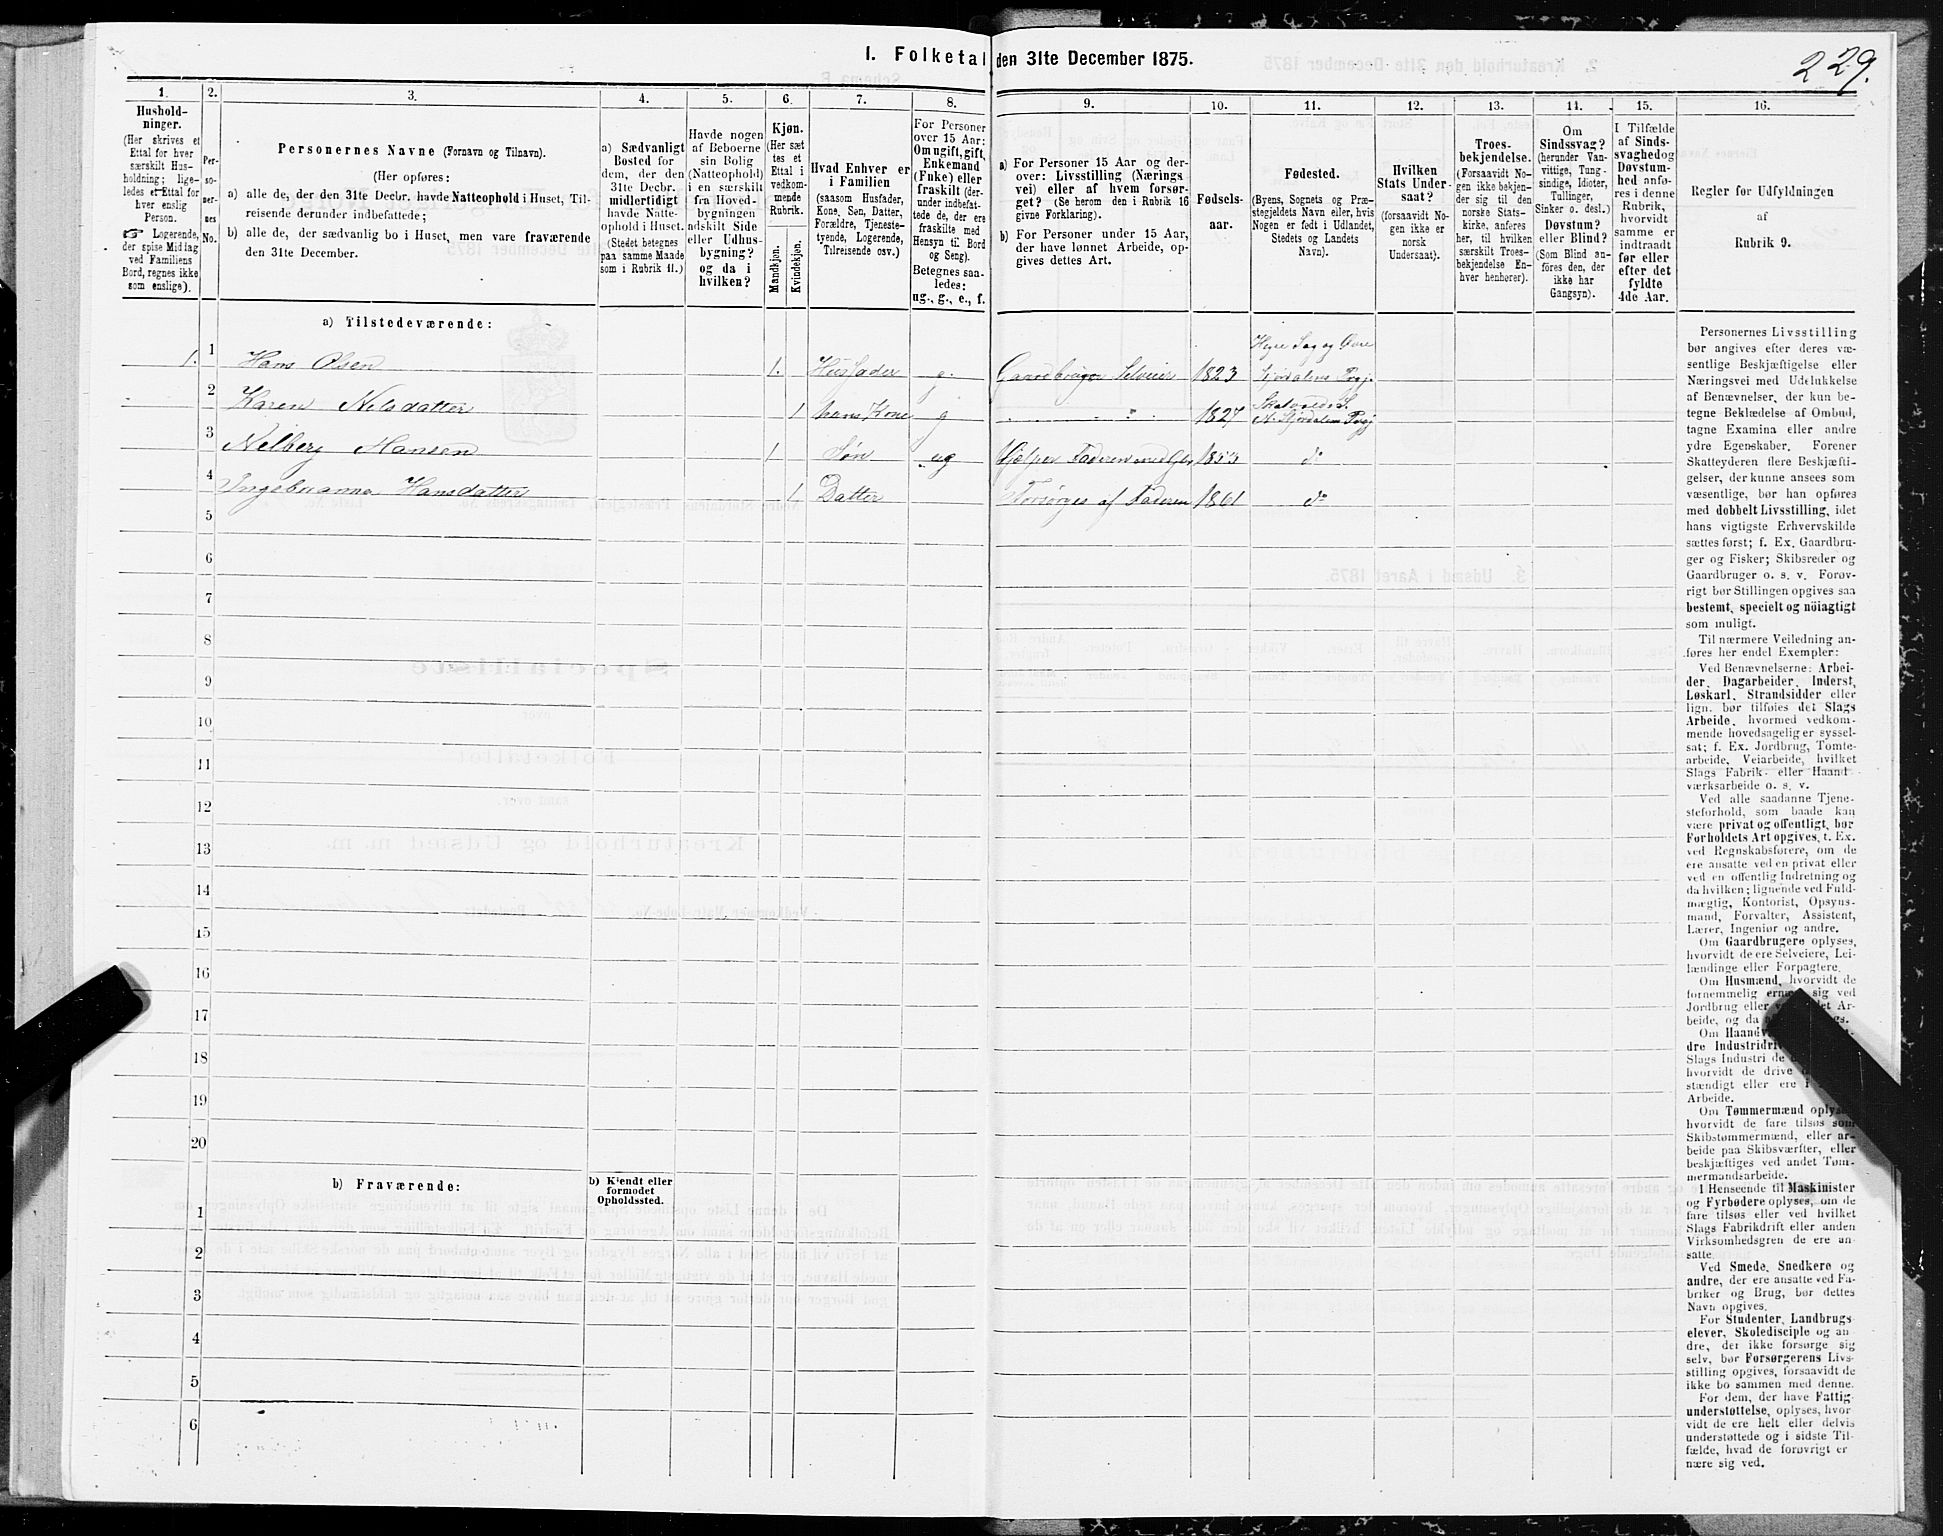 I. Folketal den 31te December 1875.
229.
1.
Hushold-
ninger.
(Her skrives et
Ettal for hver
særskilt Hus-
holdning; lige-
ledes et Ettal for
hver enslig
Person.
☞ Logerende,
der spise Middag
ved Familiens
Bord, regnes ikke
som enslige).
2.
Per-
so-
ner-
nes
No.
3.
Personernes Navne (Fornavn og Tilnavn).
(Her opføres:
a) alle de, der den 31te Decbr. havde Natteophold i Huset, Til-
reisende derunder indbefattede;
b) alle de, der sædvanlig bo i Huset, men vare fraværende
den 31te December.
4.
a) Sædvanligt
Bosted for
dem, der den
31te Decbr.
midlertidigt
havde Natte-
ophold i Huset.
(Stedet betegnes
paa samme Maade
som i Rubrik 11.)
5.
Havde nogen
af Beboerne
sin Bolig
(Natteophold)
i en særskilt
fra Hoved-
bygningen
adskilt Side
eller Udhus-
bygning?
og da i
hvilken?
6.
Kjøn.
(Her sæt
tes et
Ettal i
vedkom-
mende
Rubrik.
Mandkjøn.
Kvindekjøn.
7.
Hvad Enhver er
i Familien
(saasom Husfader,
Kone, Søn, Datter,
Forældre, Tjeneste-
tyende, Logerende,
Tilreisende osv.)
8.
For Personer
over 15 Aar:
Om ugift, gift,
Enkemand
(Enke) eller
fraskilt (der-
under indbefat-
tede de, der ere
fraskilte med
Hensyn til Bord
og Seng).
Betegnes saa-
ledes:
ug., g., e., f.
9.
a) For Personer 15 Aar og der-
over: Livsstilling (Nærings
vei) eller af hvem forsør-
get? (Se herom den i Rubrik 16
givne Forklaring).
b) For Personer under 15 Aar,
der have lønnet Arbeide, op-
gives dettes Art.
10.
Fødsels-
aar.
11.
Fødested.
(Byens, Sognets og Præ-
stegjeldets Navn eller, hvis
Nogen er født i Udlandet,
Stedets og Landets
Navn).
12.
Hvilken
Stats Under-
saat?
(forsaavidt No-
gen ikke er
norsk
Undersaat).
13.
Troes-
bekjendelse.
(Forsaavidt No
gen ikke bekjen-
der sig til den
norske Stats-
kirke, anføres
her, til hvilken
særskilt Troes-
bekjendelse En-
hver henhører).
14.
Om
Sindssvag?
(herunder Van-
vittige, Tung-
sindige, Idioter,
Tullinger,
Sinker o. desl.)
Døvstum?
eller Blind?
(Som Blind an-
føres den, der
ikke har
Gangsyn).
15.
I Tilfælde
af Sinds-
svaghed og
Døvstum-
hed anfø-
res i denne
Rubrik,
hvorvidt
samme er
indtraadt
før eller
efter det
fyldte
4de Aar.
16.
Regler før Udfyldningen
af
Rubrik 9.
a) Tilstedeværende:
1. 1 Hans Olsen 1. Husfader g. Gaardbruger Selveier 1823
2 Karen Nilsdatter 1 hans Kone g " 1827
3 Nelberg Hansen 1 Søn ug Hjelper Faderen 1853 do
4 Hansdatter 1 Datter Forsørges af Faderen 1861 do
5
6
7
8
9
10
11
12
13
14
15
16
17
18
19
20
b) Fraværende:
b) Kjendt eller
formodet
Opholdssted.
1
2
3
4
5
6
Personernes Livsstilling
bør angives efter deres væ-
sentlige Beskjæftigelse eller
Næringsvei med Udelukkelse
af Benævnelser, der kun be-
tegne Beklædelse af Ombud,
tagne Examina eller andre
ydre Egenskaber. Forener
Skatteyderen flere Beskjæfti-
gelser, der kunne ansees som
væsentlige, bør han opføres
med dobbelt Livsstilling, idet
hans vigtigste Erhvervskilde
sættes først; f. Ex. Gaardbru-
ger og Fisker; Skibsreder og
Gaardbruger o. s. v. Forøv-
rigt bør Stillingen opgives saa
bestemt, specielt og nöiagtigt
som muligt.
Til nærmere Veiledning an-
føres her endel Exempler:
Ved Benævnelserne: Arbei-
der, Dagarbeider, Inderst,
Løskarl, Strandsidder eller
lign. bør tilføies det Slags
Arbeide, hvormed vedkom-
mende hovedsagelig er syssel-
sat; f. Ex. Jordbrug, Tomte-
arbeide, Veiarbeide, hvilket
Slags Fabrik- eller Haand-
værksarbeide o. s. v.
Ved alle saadanne Tjene-
steforhold, som baade kan
være privat og offentligt, bør
Forholdets Art opgives, t. Ex.
ved Regnskabsførere, om de
ere ansatte ved en privat eller
ved en offentlig Indretning og
da hvilken; lignende ved Fuld-
mægtig, Kontorist, Opsyns-
mand, Forvalter, Assistent,
Lærer, Ingeniør og andre.
Om Gaardbrugere oplyses,
hvorvidt de ere Selveiere, Lei-
lændinge eller Forpagtere.
Om Husmænd, hvorvidt de
fornemmelig sig ved
Jordbrug eller Ar-
beide, og da
Om
dre
Slags Industri de
hvorvidt de drive
stændigt eller ere
Arbeide.
Om Tømmermænd oplyses
hvorvidt de fare tilsøs som
Skibstømmermænd, eller ar-
beide paa Skibsværfter, eller
beskjæftiges ved andet Tøm-
mermandsarbeide.
I Henseende til Maskinister
og Fyrbødere oplyses, om de
fare tilsøs eller ved hvilket
Slags Fabrikdrift eller anden
Virksomhedsgren de ere an-
satte.
Ved Smede, Snedkere og
andre, der ere ansatte ved Fa-
briker og Brug, bør dettes
Navn opgives.
For Studenter, Landbrugs-
elever, Skoledisciple og an
dre, der ikke forsørge sig
selv, bør Forsørgerens Livs-
stilling opgives, forsaavidt de
ikke bo sammen med denne.
For dem, der have Fattig-
understøttelse, oplyses, hvor
vidt de ere helt eller delvis
understøttede og i sidste Til-
fælde, hvad de forøvrigt er
nære sig ved.